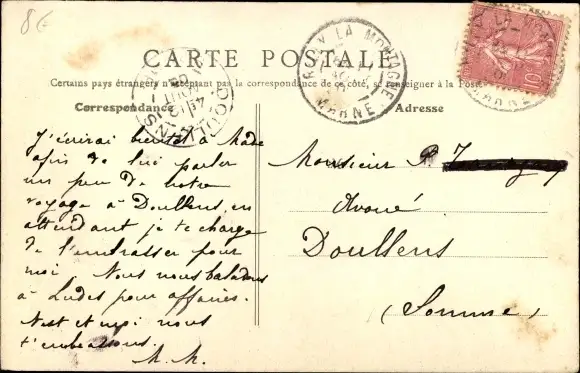 8€
CARTE POSTALE
Certains pays étrangers n'acceptant pas la correspondance de ce côté, se renseigner à la Poste
Correspondance
Adresse
RILLY LA MONTAGNE
MARNE
DOULLENS
10
J'écrirai bientôt à Made
afin de lui parler
un peu de notre
voyage à Doullens, en
attendant je te charge
de l'embrasser pour
moi. Nous nous baladons
à Ludes pour affaires.
et moi nous
t'embrassons.
M. M.
Monsieur P.
Avoué
Doullens
(Somme)